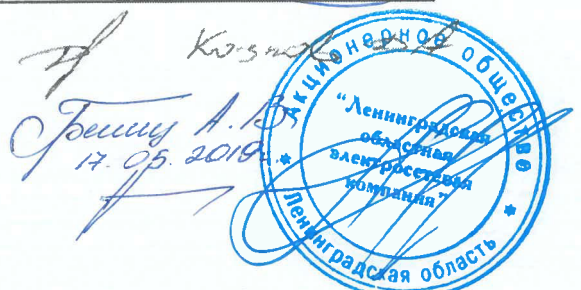 А. В.
17.05.2019г.
Акционерное общество
"Ленинградская
областная
электросетевая
компания"
Ленинградская область